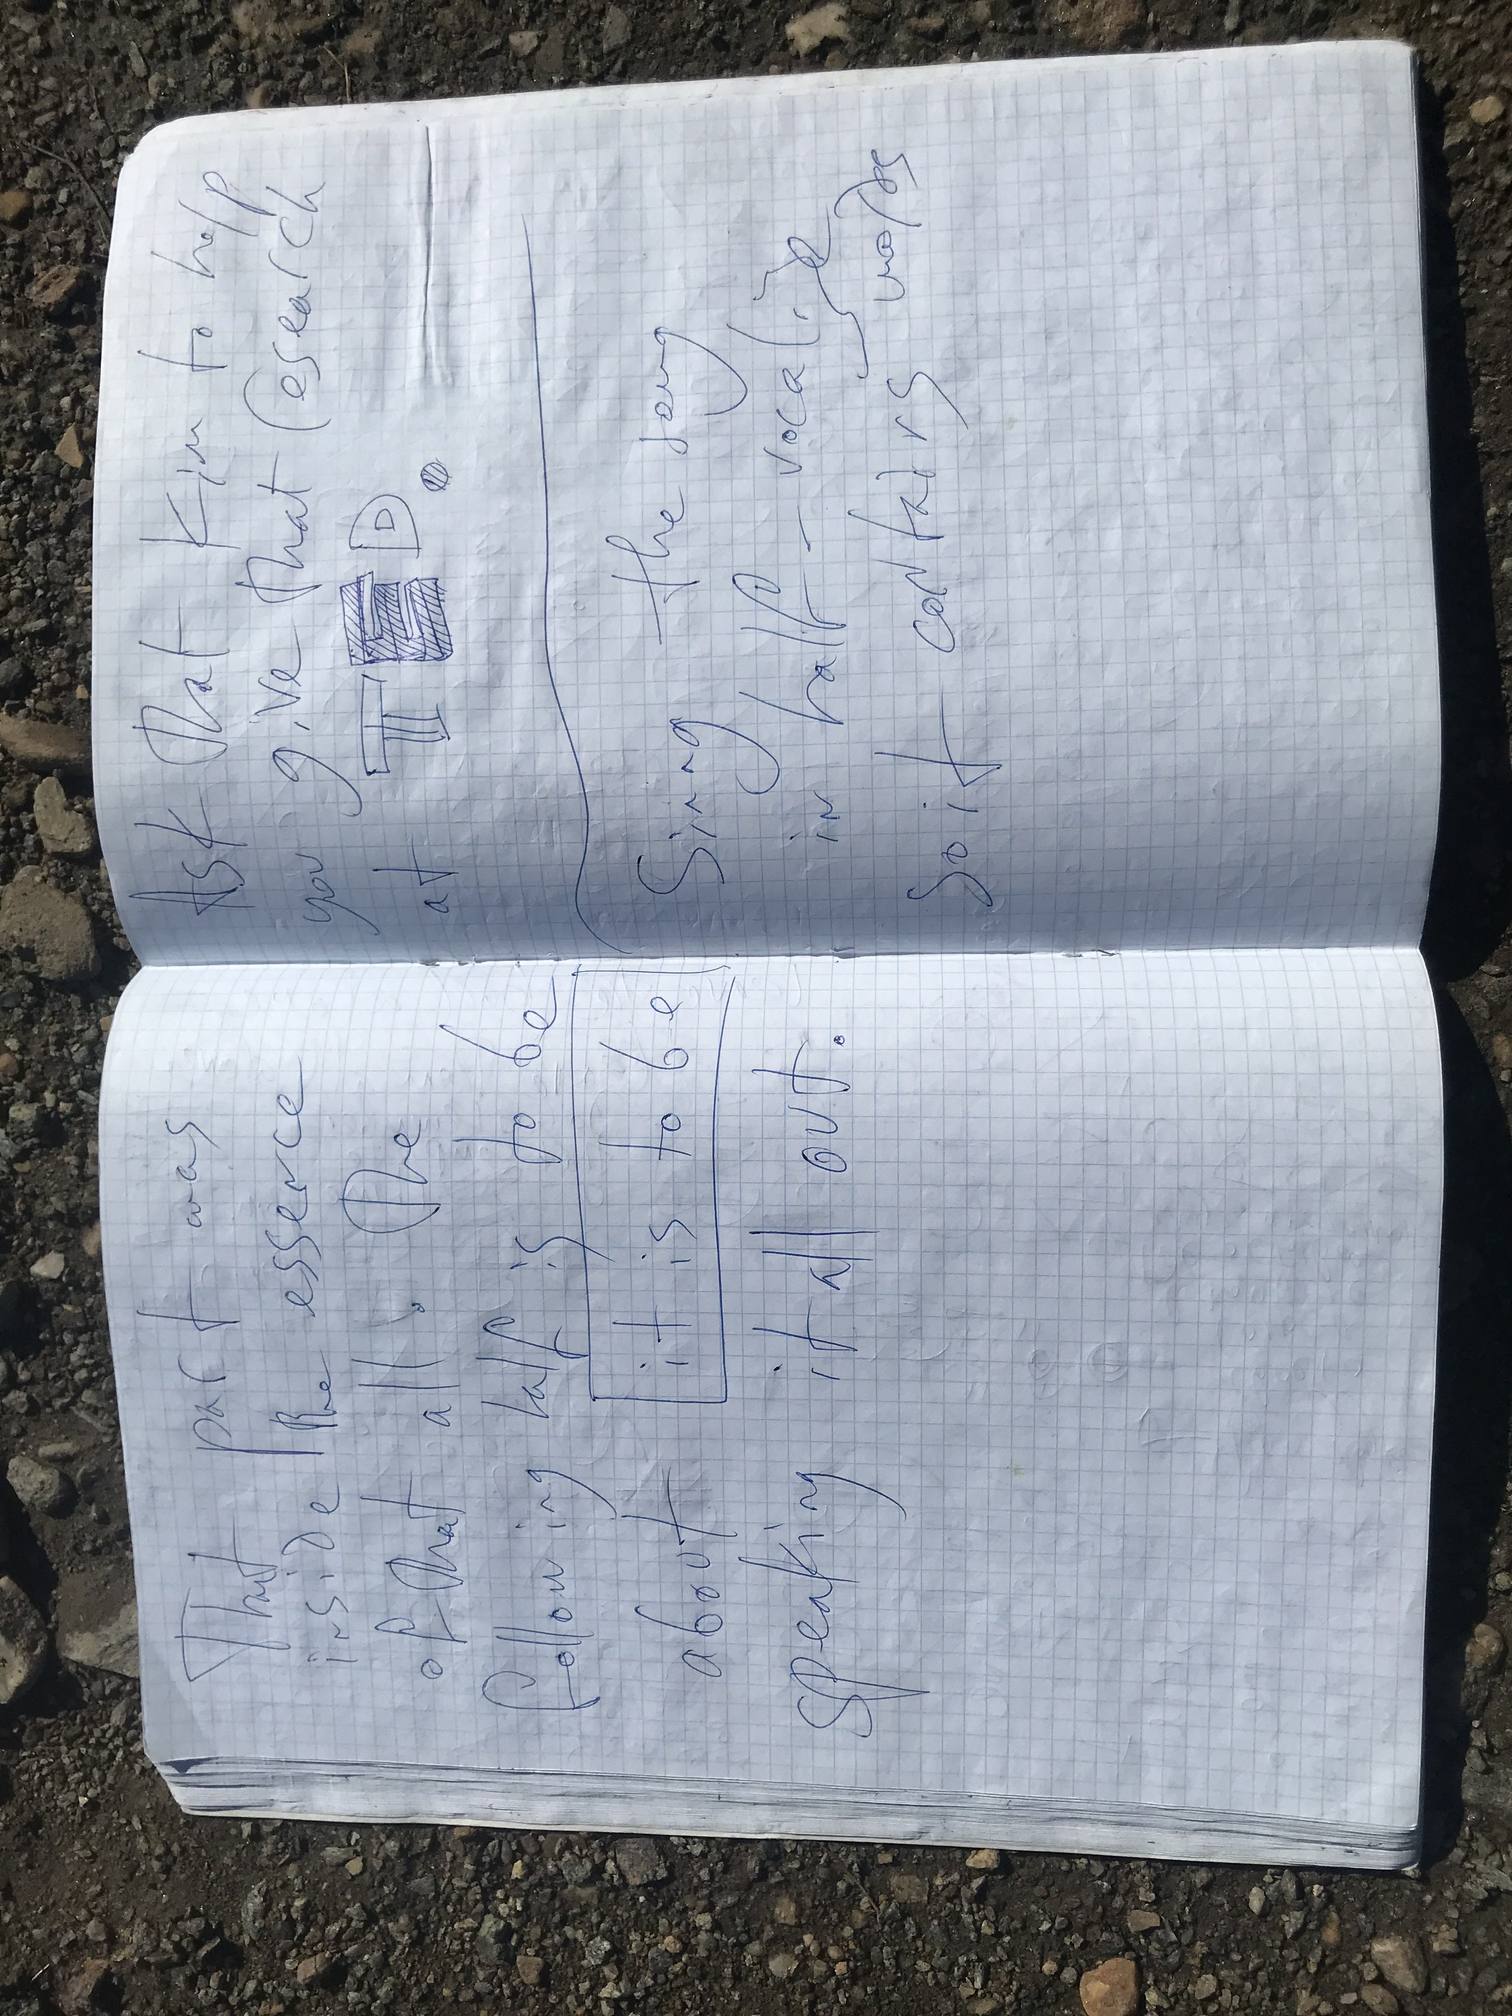 That part was
inside the essence
of that all. The
following half is to be
about it is to be
speaking it all out.
Ask that Kim to help
you give that research
at TED.
Sing the song
in half-vocalize
so it contains notes